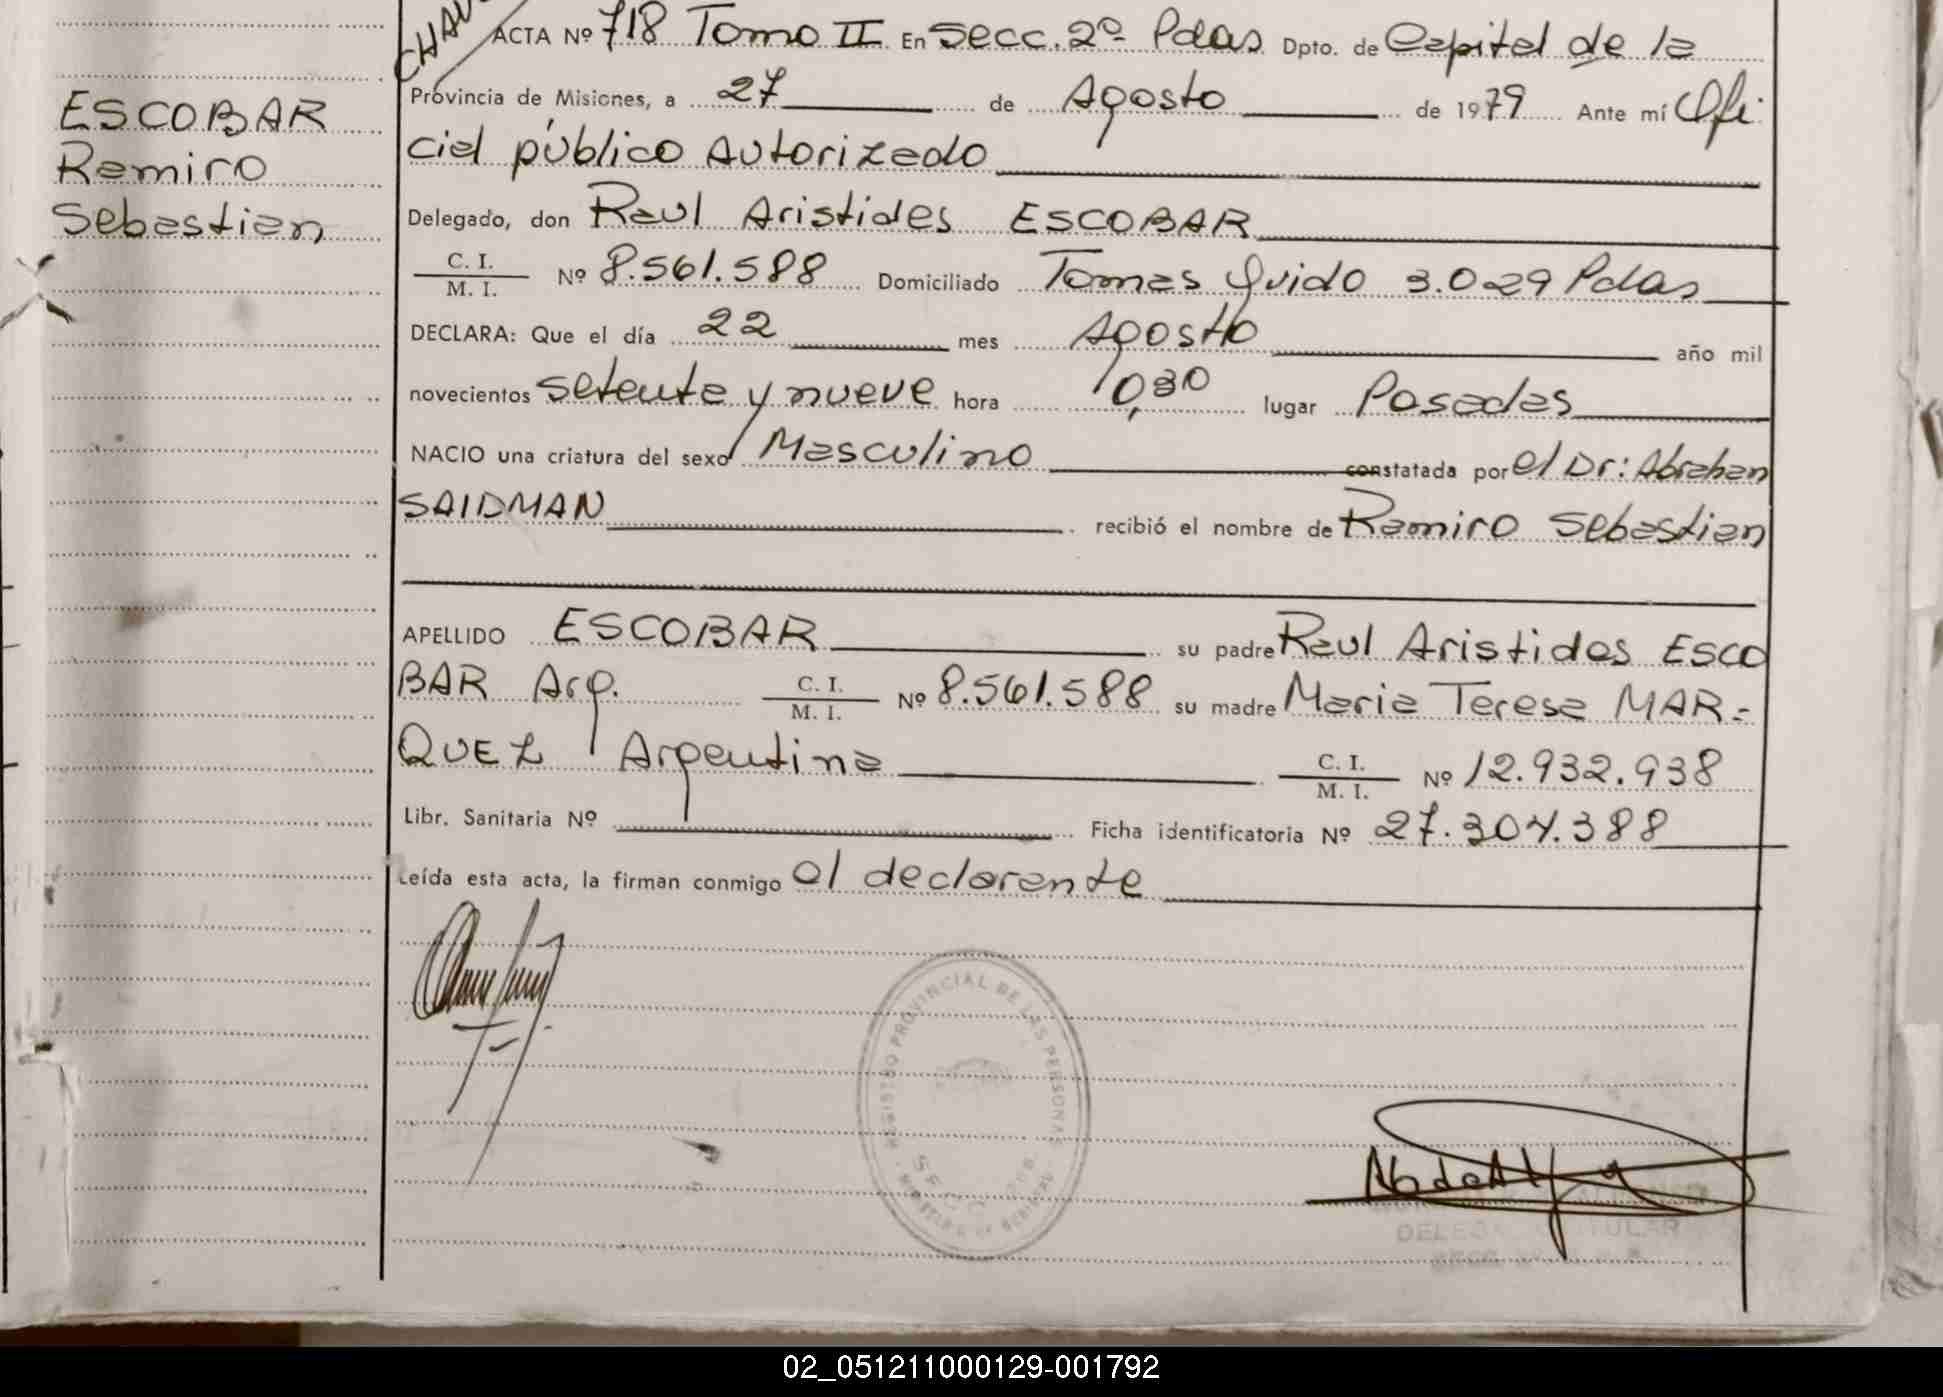 ACTA Nº 718 Tomo II En Secc. 2º Pdas Dpto. de Capital de la
Provincia de Misiones, a 27 de Agosto de 1979 Ante mí Ofi
cial público Autorizado
Delegado, don Raul Aristides ESCOBAR
C. I.
M. I. Nº 8.561.588 Domiciliado Tomas Guido 3.029 Pdas
DECLARA: Que el día 22 mes Agosto año mil
novecientos setenta y nueve hora 0,30 lugar Posadas
NACIO una criatura del sexo Masculino constatada por el Dr: Abrahan
SAIDMAN recibió el nombre de Ramiro Sebastian
APELLIDO ESCOBAR su padre Raul Aristides ESCO
BAR Arg. C. I.
M. I. Nº 8.561.588 su madre Maria Teresa MAR-
QUEZ Argentina C. I.
M. I. Nº 12.932.938
Libr. Sanitaria Nº Ficha identificatoria Nº 27.304.388
Leída esta acta, la firman conmigo el declarante
ESCOBAR
Ramiro
Sebastian
REGISTRO PROVINCIAL DE LAS PERSONAS
02_051211000129-001792